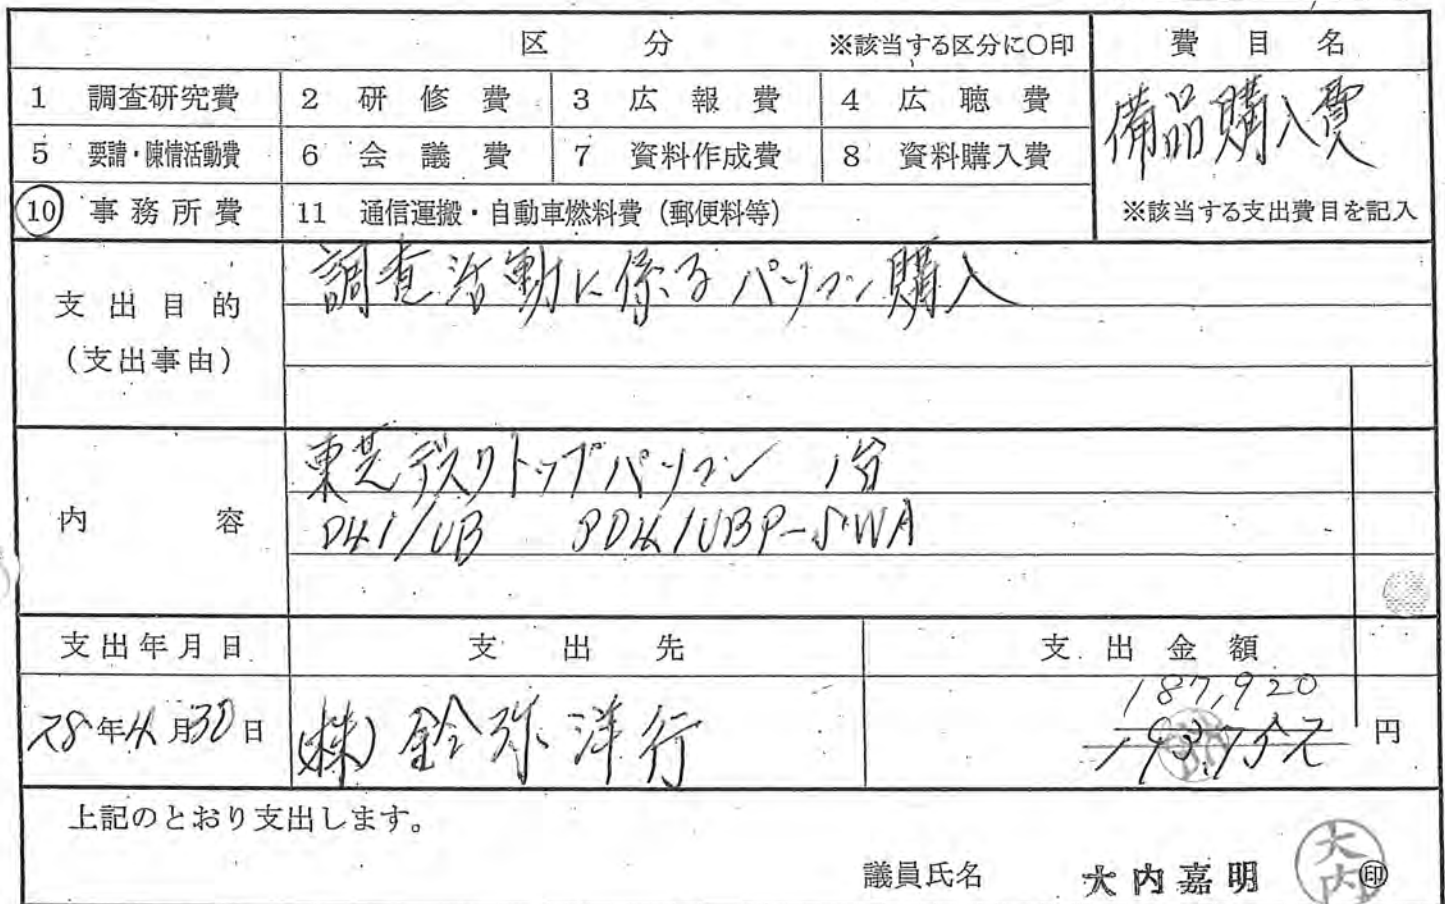 区 分 ※該当する区分に○印 費 目 名
1 調査研究費 2 研 修 費 3 広 報 費 4 広 聴 費 備品購入費
5 要請・陳情活動費 6 会 議 費 7 資料作成費 8 資料購入費
10 事 務 所 費 11 通信運搬・自動車燃料費（郵便料等） ※該当する支出費目を記入
支 出 目 的 調査活動に係るパソコン購入
（支出事由）
東芝デスクトップパソコン 1台
内 容 D41/UB PD41UBP-SWA
支出年月日 支 出 先 支 出 金 額
187,920
28年4月30日 (株)鈴弥洋行 円
上記のとおり支出します。
議員氏名 大内嘉明 大内 ㊞